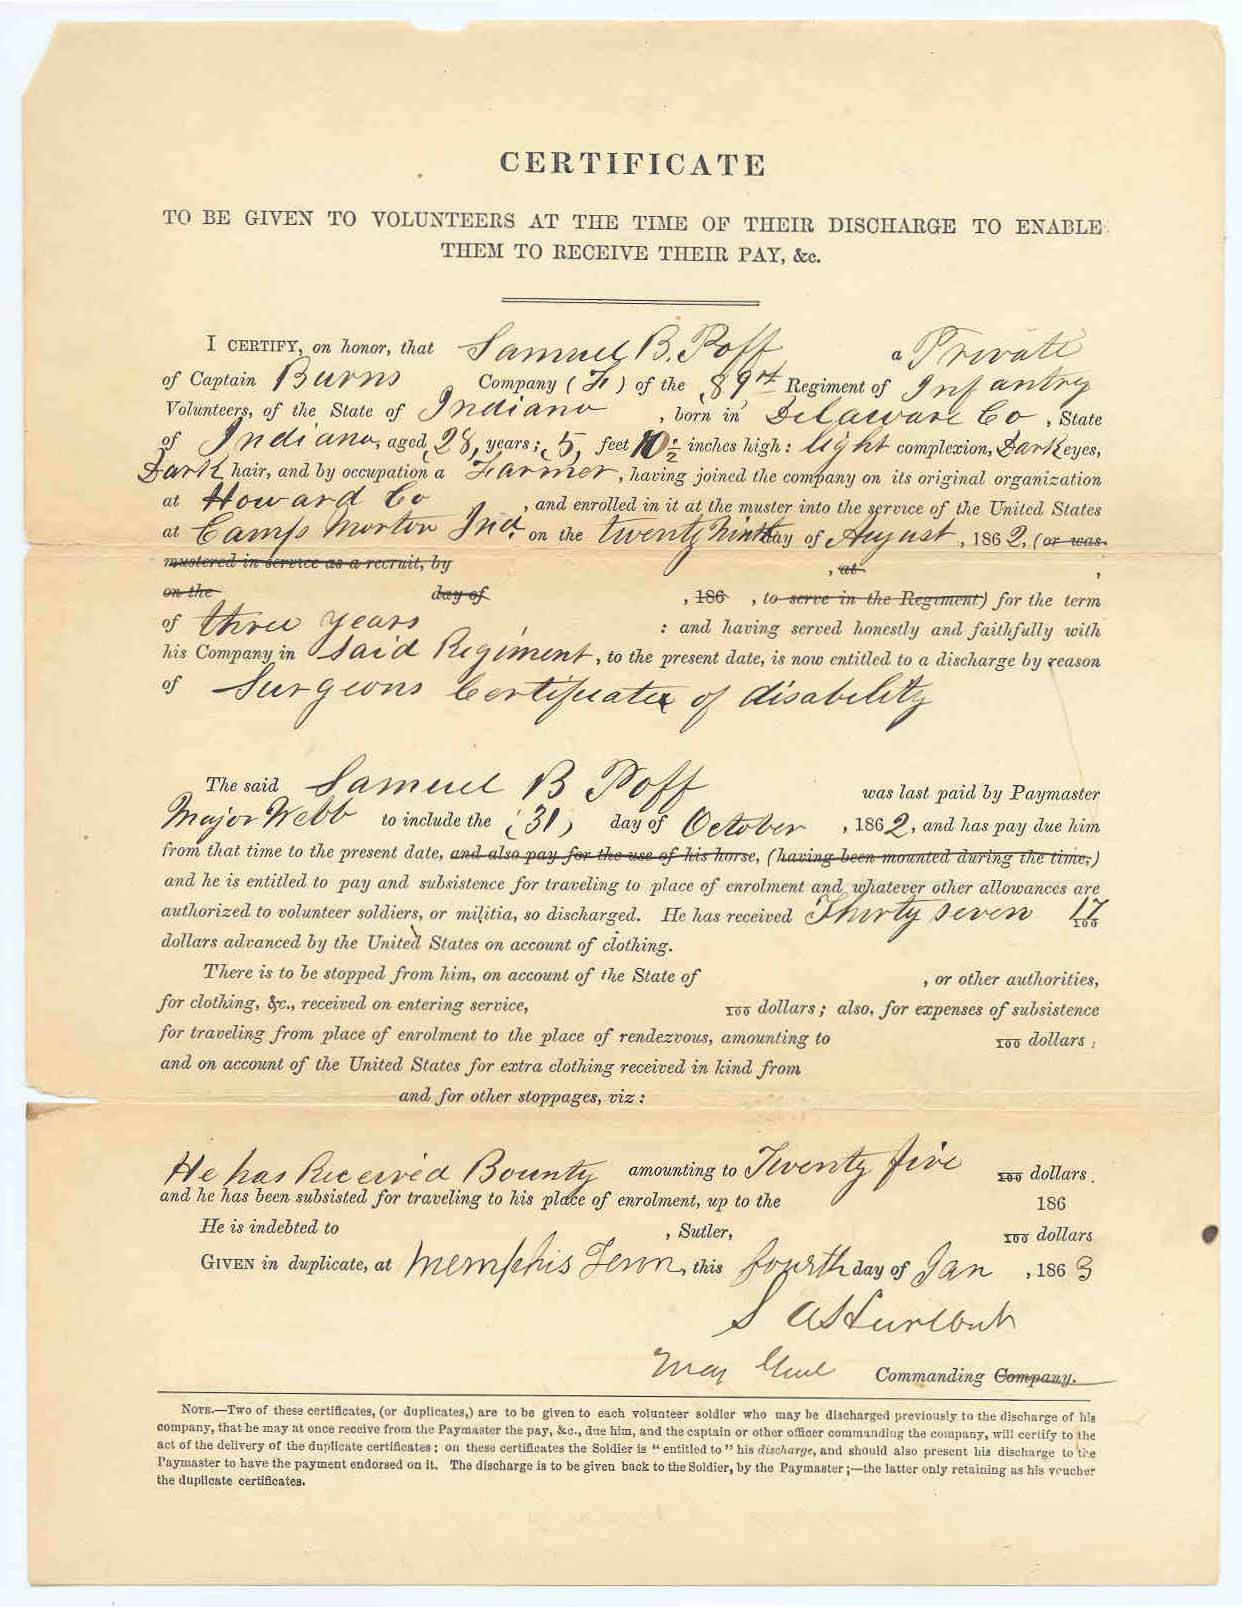 CERTIFICATE
TO BE GIVEN TO VOLUNTEERS AT THE TIME OF THEIR DISCHARGE TO ENABLE
THEM TO RECEIVE THEIR PAY, &c.
I CERTIFY, on honor, that Samuel B. Poff a Private
of Captain Burns Company (F) of the 89 Regiment of Infantry
Volunteers, of the State of Indiana, born in Delaware Co, State
of Indiana, aged 28, years; 5, feet 10 ½ inches high: light complexion, Dark eyes,
Dark hair, and by occupation a Farmer, having joined the company on its original organization
at Howard Co, and enrolled in it at the muster into the service of the United States
at Camp Morton Ind. on the twenty Ninth day of August, 1862, (or was
mustered in service as a recruit, by , at ,
on the day of , 186 , to serve in the Regiment) for the term
of three years : and having served honestly and faithfully with
his Company in Said Regiment, to the present date, is now entitled to a discharge by reason
of Surgeons Certificate of disability
The said Samuel B Poff was last paid by Paymaster
Major Webb to include the (31) day of October, 1862, and has pay due him
from that time to the present date, and also pay for the use of his horse, (having been mounted during the time,)
and he is entitled to pay and subsistence for traveling to place of enrolment and whatever other allowances are
authorized to volunteer soldiers, or militia, so discharged. He has received Thirty seven 17/100
dollars advanced by the United States on account of clothing.
There is to be stopped from him, on account of the State of , or other authorities,
for clothing, &c., received on entering service, 100 dollars; also, for expenses of subsistence
for traveling from place of enrolment to the place of rendezvous, amounting to 100 dollars;
and on account of the United States for extra clothing received in kind from
and for other stoppages, viz:
He has Received Bounty amounting to Twenty five 100 dollars.
and he has been subsisted for traveling to his place of enrolment, up to the 186
He is indebted to , Sutler, 100 dollars
GIVEN in duplicate, at Memphis Tenn, this fourth day of Jan, 1863
S A Hurlbut
Maj Genl Commanding Company.
NOTE.—Two of these certificates, (or duplicates,) are to be given to each volunteer soldier who may be discharged previously to the discharge of his
company, that he may at once receive from the Paymaster the pay, &c., due him, and the captain or other officer commanding the company, will certify to the
act of the delivery of the duplicate certificates: on these certificates the Soldier is "entitled to" his discharge, and should also present his discharge to the
Paymaster to have the payment endorsed on it. The discharge is to be given back to the Soldier, by the Paymaster;—the latter only retaining as his voucher
the duplicate certificates.